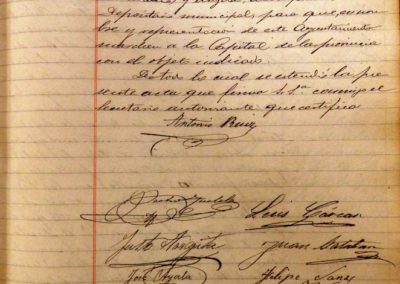 Depositario municipal, para que, en nom-
bre y representación de este Ayuntamiento
marchen a la Capital de la provincia
con el objeto indicado.
De todo lo cual se extendió la pre-
sente acta que firma S. Sª conmigo el
Secretario autorizante que certifico
Antonio Ruiz
Luis García
Justo
Juan
José Ayala
Felipe Sanz